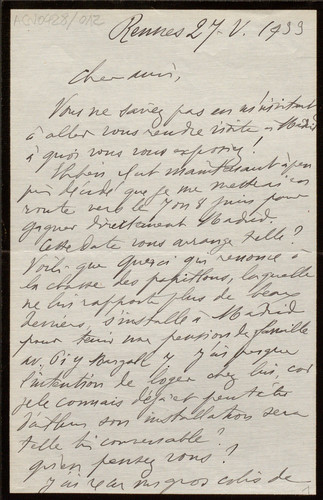 AC10928/012
Rennes 27-V. 1933
Cher ami,
Vous ne savez pas en m'invitant
à aller vous rendre visite à Madrid
à quoi vous vous exposiez!
il est maintenant à peu
près décidé que je me mettrai en
route vers le 7 ou 8 juin pour
gagner directement Madrid.
Cette date vous arrange-t-elle?
Voilà que qui renonce à
la chasse des papillons, laquelle
ne lui rapporte plus de beaux
deniers, s'installe à Madrid
pour tenir une pension de famille
av. Pi y Margall 7 j'ai presque
l'intention de loger chez lui, car
je le connais déjà et peut être
d'ailleurs son installation sera
telle convenable?
qu'en pensez vous?
J'ai reçu un gros colis de